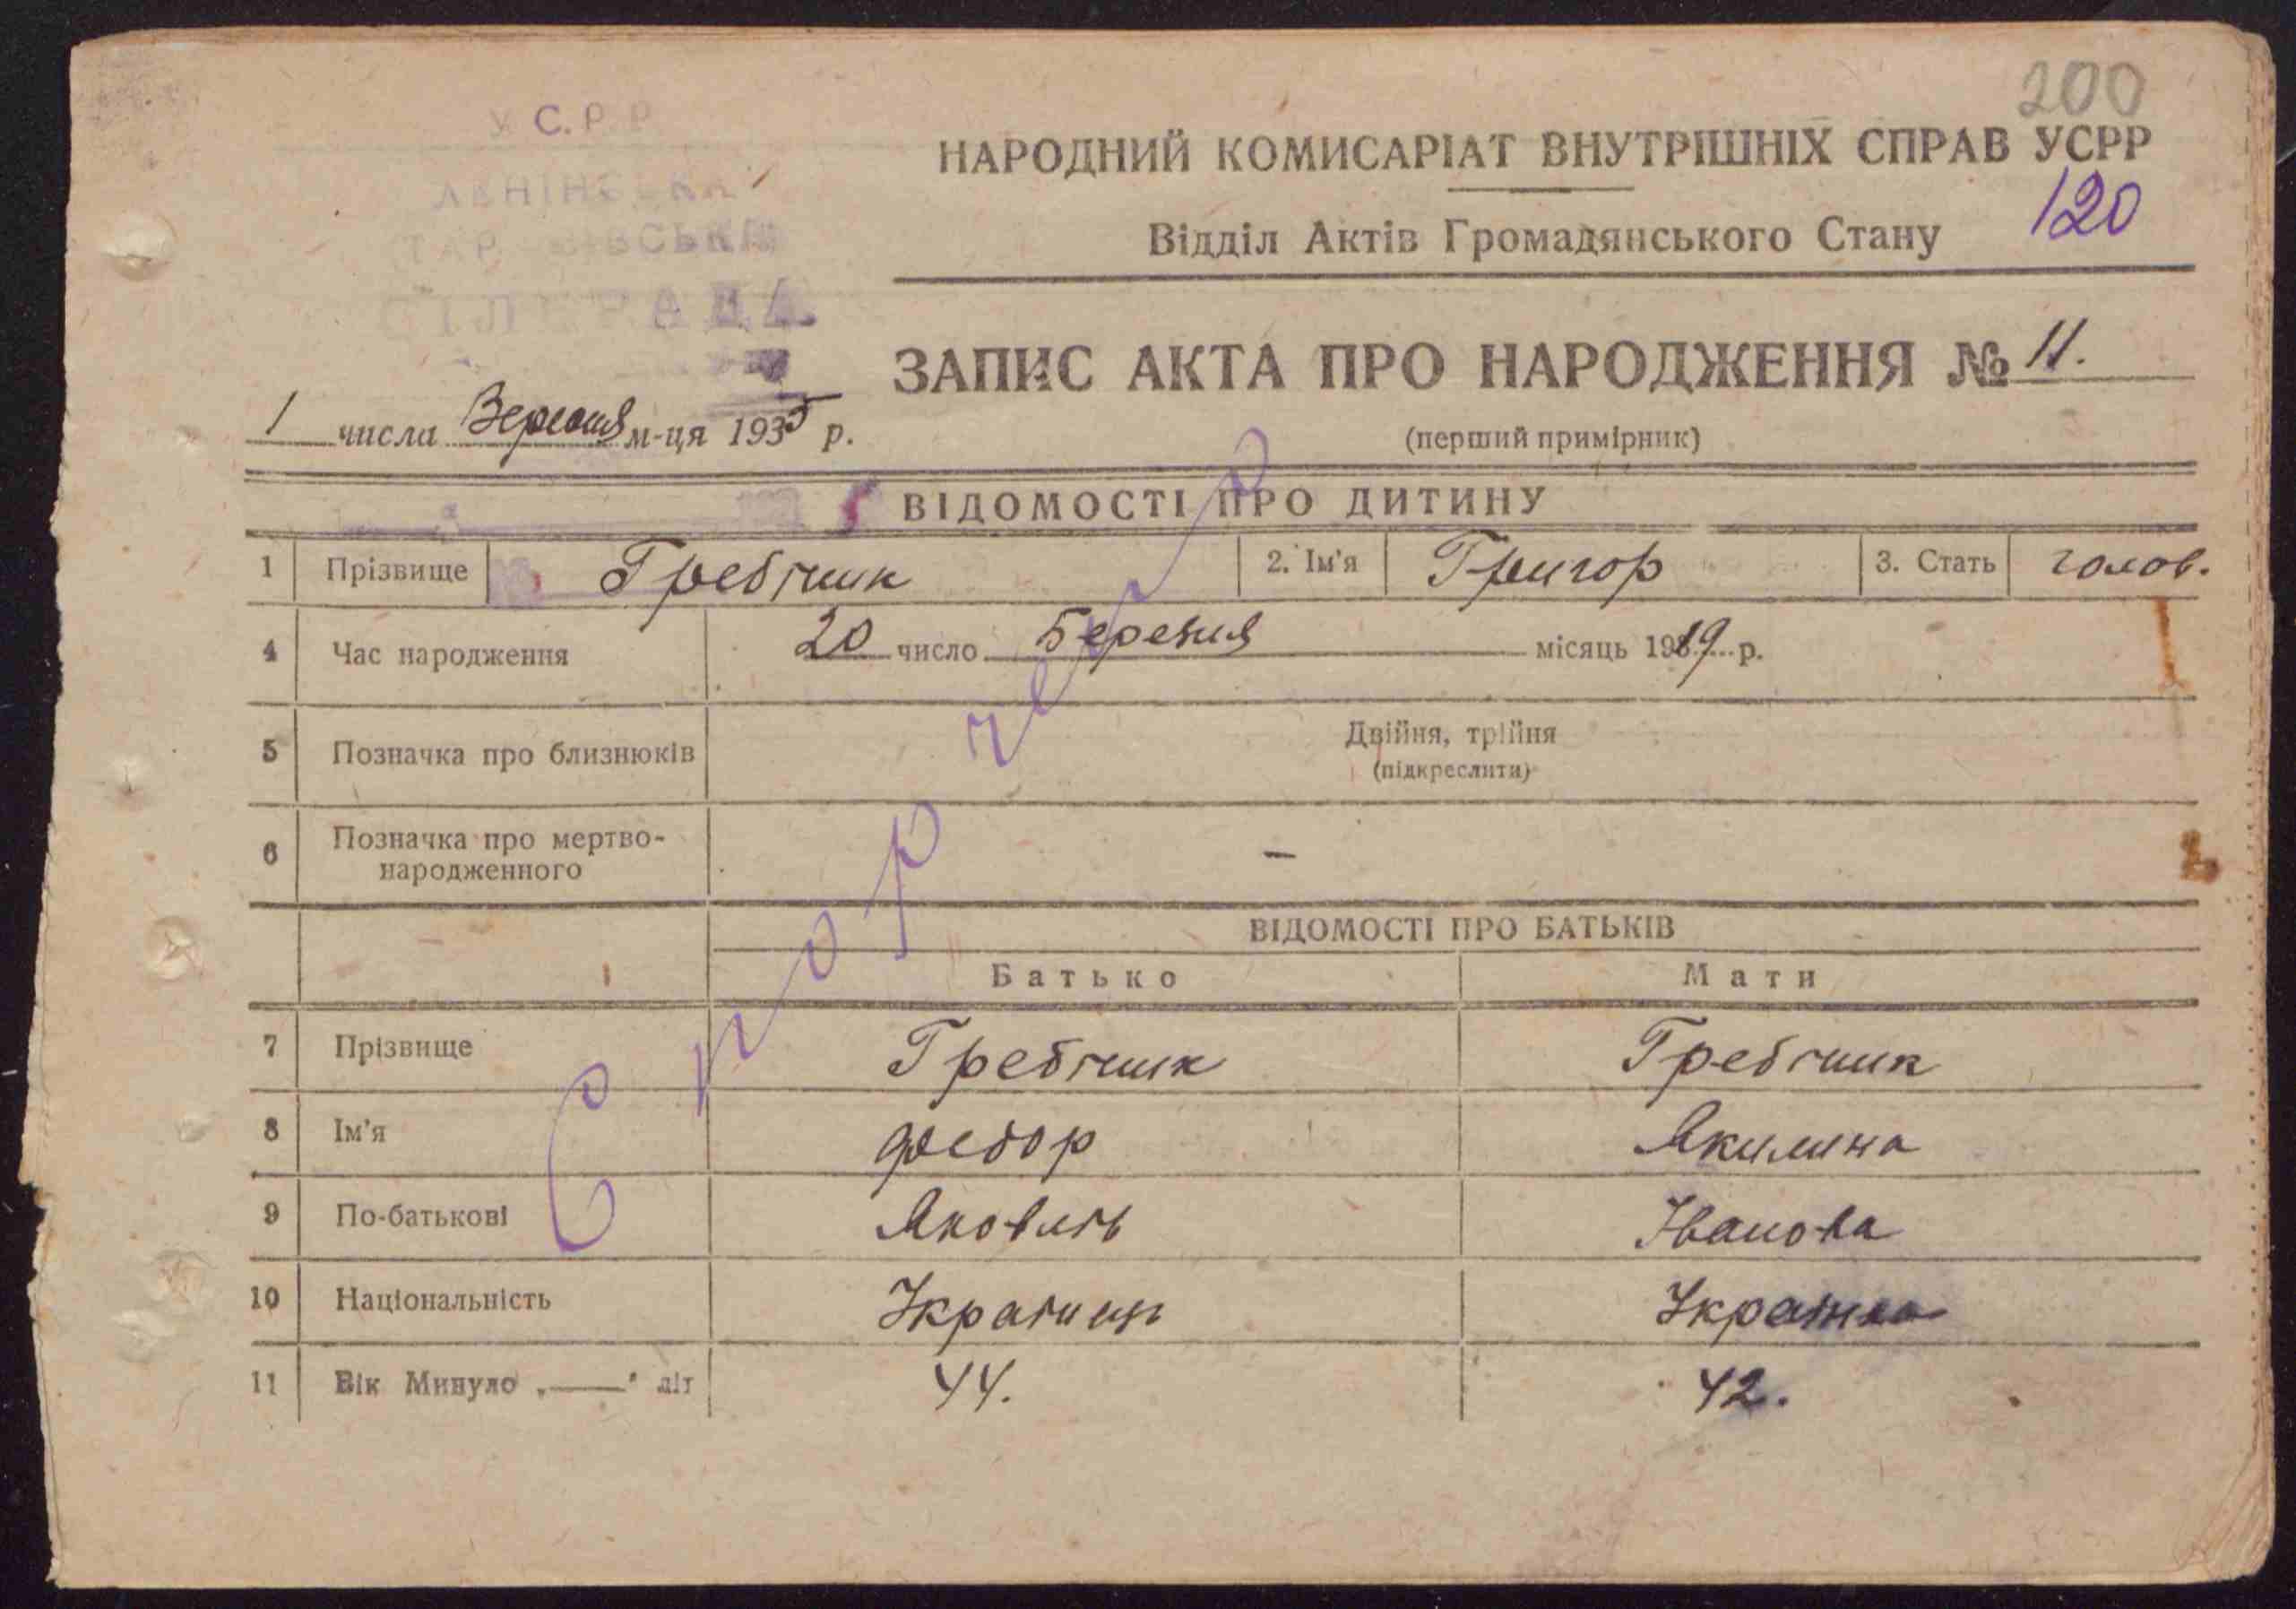 200
У.С.Р.Р.
НАРОДНИЙ КОМИСАРІАТ ВНУТРІШНІХ СПРАВ УСРР
120
Відділ Актів Громадянського Стану
СІЛЬРАДА
ЗАПИС АКТА ПРО НАРОДЖЕННЯ № 11.
1 числа Вересня м-ця 1935 р.
(перший примірник)
ВІДОМОСТІ ПРО ДИТИНУ
1 Прізвище Гребічик 2. Ім'я Григор 3. Стать голов.
4 Час народження 20 число Березня місяць 1919 р.
5 Позначка про близнюків Двійня, трійня
(підкреслити)
6 Позначка про мертво-
народженного –
ВІДОМОСТІ ПРО БАТЬКІВ
Батько Мати
7 Прізвище Гребічик Гребічик
8 Ім'я Федор Якилина
9 По-батькові Яковліч Іванова
10 Національність Українец Українка
11 Вік Минуло „—" літ 44. 42.